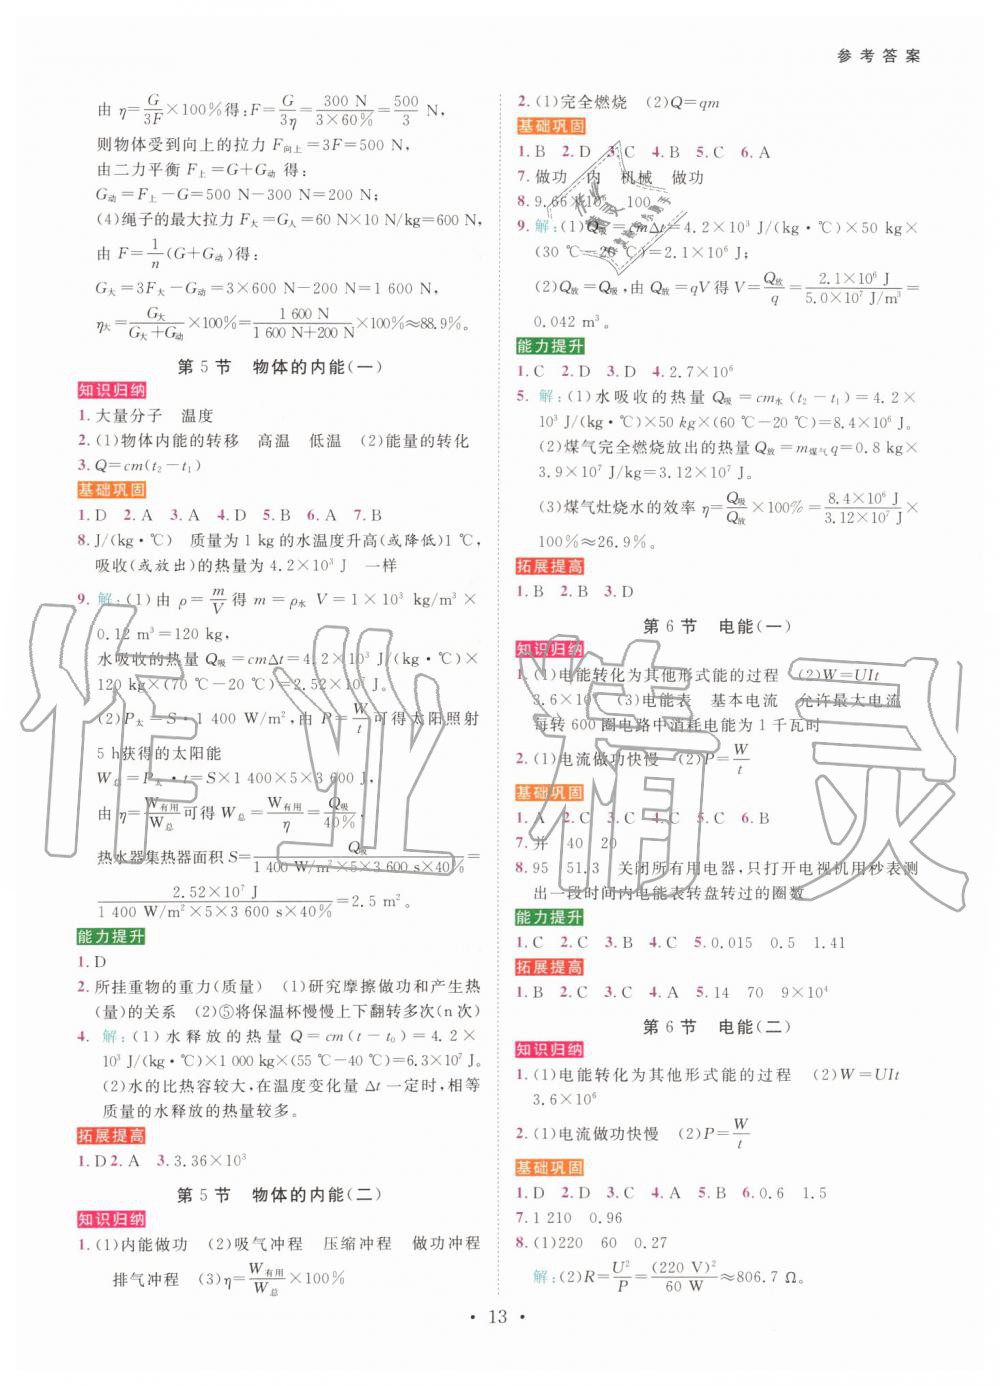 参考答案
由 η=G/3F×100%得:F=G/3η=300 N/3×60%=500/3 N,
则物体受到向上的拉力 F向上=3F=500 N,
由二力平衡 F上=G+G动 得:
G动=F上-G=500 N-300 N=200 N;
(4)绳子的最大拉力 F大=G人=60 N×10 N/kg=600 N,
由 F=1/n(G+G动)得:
G大=3F大-G动=3×600 N-200 N=1 600 N,
η大=G大/G大+G动×100%=1 600 N/1 600 N+200 N×100%≈88.9%。
第5节 物体的内能(一)
知识归纳
1.大量分子 温度
2.(1)物体内能的转移 高温 低温 (2)能量的转化
3.Q=cm(t₂-t₁)
基础巩固
1.D 2.A 3.A 4.D 5.B 6.A 7.B
8.J/(kg·℃) 质量为1 kg的水温度升高(或降低)1 ℃,
吸收(或放出)的热量为4.2×10³ J 一样
9.解:(1)由 ρ=m/V得 m=ρ水 V=1×10³ kg/m³×
0.12 m³=120 kg,
水吸收的热量 Q吸=cmΔt=4.2×10³ J/(kg·℃)×
120 kg×(70 ℃-20 ℃)=2.52×10⁷ J;
(2)P太=S·1 400 W/m²,由 P=W/t可得太阳照射
5 h获得的太阳能
W总=P太·t=S×1 400×5×3 600 J,
由 η=W有用/W总可得 W总=W有用/η=Q吸/40%,
热水器集热器面积 S=Q吸/1 400 W/m²×5×3 600 s×40%=
2.52×10⁷ J/1 400 W/m²×5×3 600 s×40%=2.5 m²。
能力提升
1.D
2.所挂重物的重力(质量) (1)研究摩擦做功和产生热
(量)的关系 (2)⑤将保温杯慢慢上下翻转多次(n次)
4.解:(1)水释放的热量 Q=cm(t-t₀)=4.2×
10³ J/(kg·℃)×1 000 kg×(55 ℃-40 ℃)=6.3×10⁷ J。
(2)水的比热容较大,在温度变化量 Δt一定时,相等
质量的水释放的热量较多。
拓展提高
1.D2.A 3.3.36×10³
第5节 物体的内能(二)
知识归纳
1.(1)内能做功 (2)吸气冲程 压缩冲程 做功冲程
排气冲程 (3)η=W有用/W总×100%
2.(1)完全燃烧 (2)Q=qm
基础巩固
1.B 2.D 3.C 4.B 5.C 6.A
7.做功 内 机械 做功
8.9.66×10 100
9.解:(1)Q吸=cmΔt=4.2×10³ J/(kg·℃)×50 kg×
(30 ℃-20 ℃)=2.1×10⁶ J;
(2)Q放=Q吸,由 Q放=qV得 V=Q放/q=2.1×10⁶ J/5.0×10⁷ J/m³=
0.042 m³。
能力提升
1.C 2.D 3.D 4.2.7×10⁶
5.解:(1)水吸收的热量 Q吸=cm水(t₂-t₁)=4.2×
10³ J/(kg·℃)×50 kg×(60 ℃-20 ℃)=8.4×10⁶ J。
(2)煤气完全燃烧放出的热量 Q放=m煤气q=0.8 kg×
3.9×10⁷ J/kg=3.12×10⁷ J。
(3)煤气灶烧水的效率 η=Q吸/Q放×100%=8.4×10⁶ J/3.12×10⁷ J×
100%≈26.9%。
拓展提高
1.B 2.B 3.D
第6节 电能(一)
知识归纳
1.(1)电能转化为其他形式能的过程 (2)W=UIt
3.6×10 (3)电能表 基本电流 允许最大电流
每转600圈电路中消耗电能为1千瓦时
2.(1)电流做功快慢 (2)P=W/t
基础巩固
1.A 2.C 3.C 4.B 5.C 6.C
7.并 40 20
8.95 51.3 关闭所有用电器,只打开电视机用秒表测
出一段时间内电能表转盘转过的圈数
能力提升
1.C 2.C 3.B 4.C 5.0.015 0.5 1.41
拓展提高
1.B 2.C 3.C 4.A 5.14 70 9×10⁴
第6节 电能(二)
知识归纳
1.(1)电能转化为其他形式能的过程 (2)W=UIt
3.6×10⁶
2.(1)电流做功快慢 (2)P=W/t
基础巩固
1.D 2.D 3.A 4.A 5.B 6.0.6 1.5
7.1 210 0.96
8.(1)220 60 0.27
解:(2)R=U²/P=(220 V)²/60 W≈806.7 Ω。
· 13 ·
作业精灵